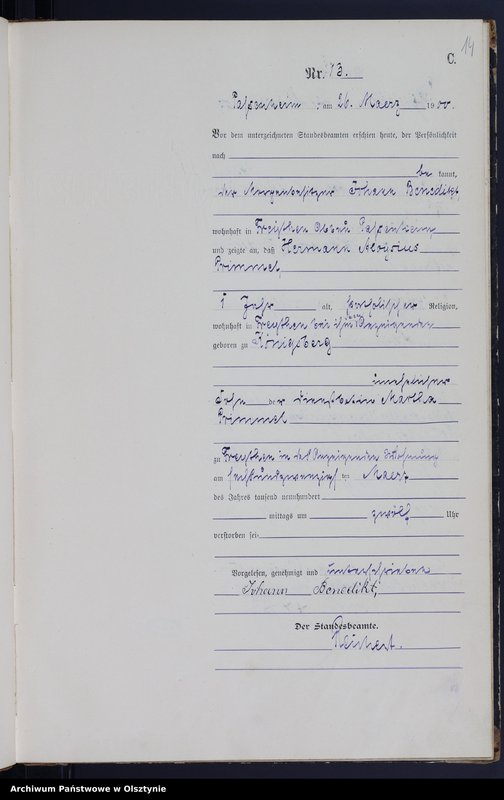 14
C.
Nr. 13.
Passenheim, am 26. Maerz 1900.
Vor dem unterzeichneten Standesbeamten erschien heute, der Persönlichkeit
nach
be kannt,
der Johann Benedikt,
wohnhaft in Abbau Passenheim,
und zeigte an, daß Hermann Aloysius
Primmel,
1 Jahr alt, katholischer Religion,
wohnhaft in bei ihm Anzeigenden
geboren zu Königsberg
unehelicher
Sohn der Martha
Primmel
zu in des Anzeigenden Wohnung
am sechsundzwanzigsten Maerz
des Jahres tausend neunhundert
mittags um zwölf Uhr
verstorben sei.
Vorgelesen, genehmigt und unterschrieben
Johann Benedikt,
Der Standesbeamte.
Archiwum Państwowe w Olsztynie